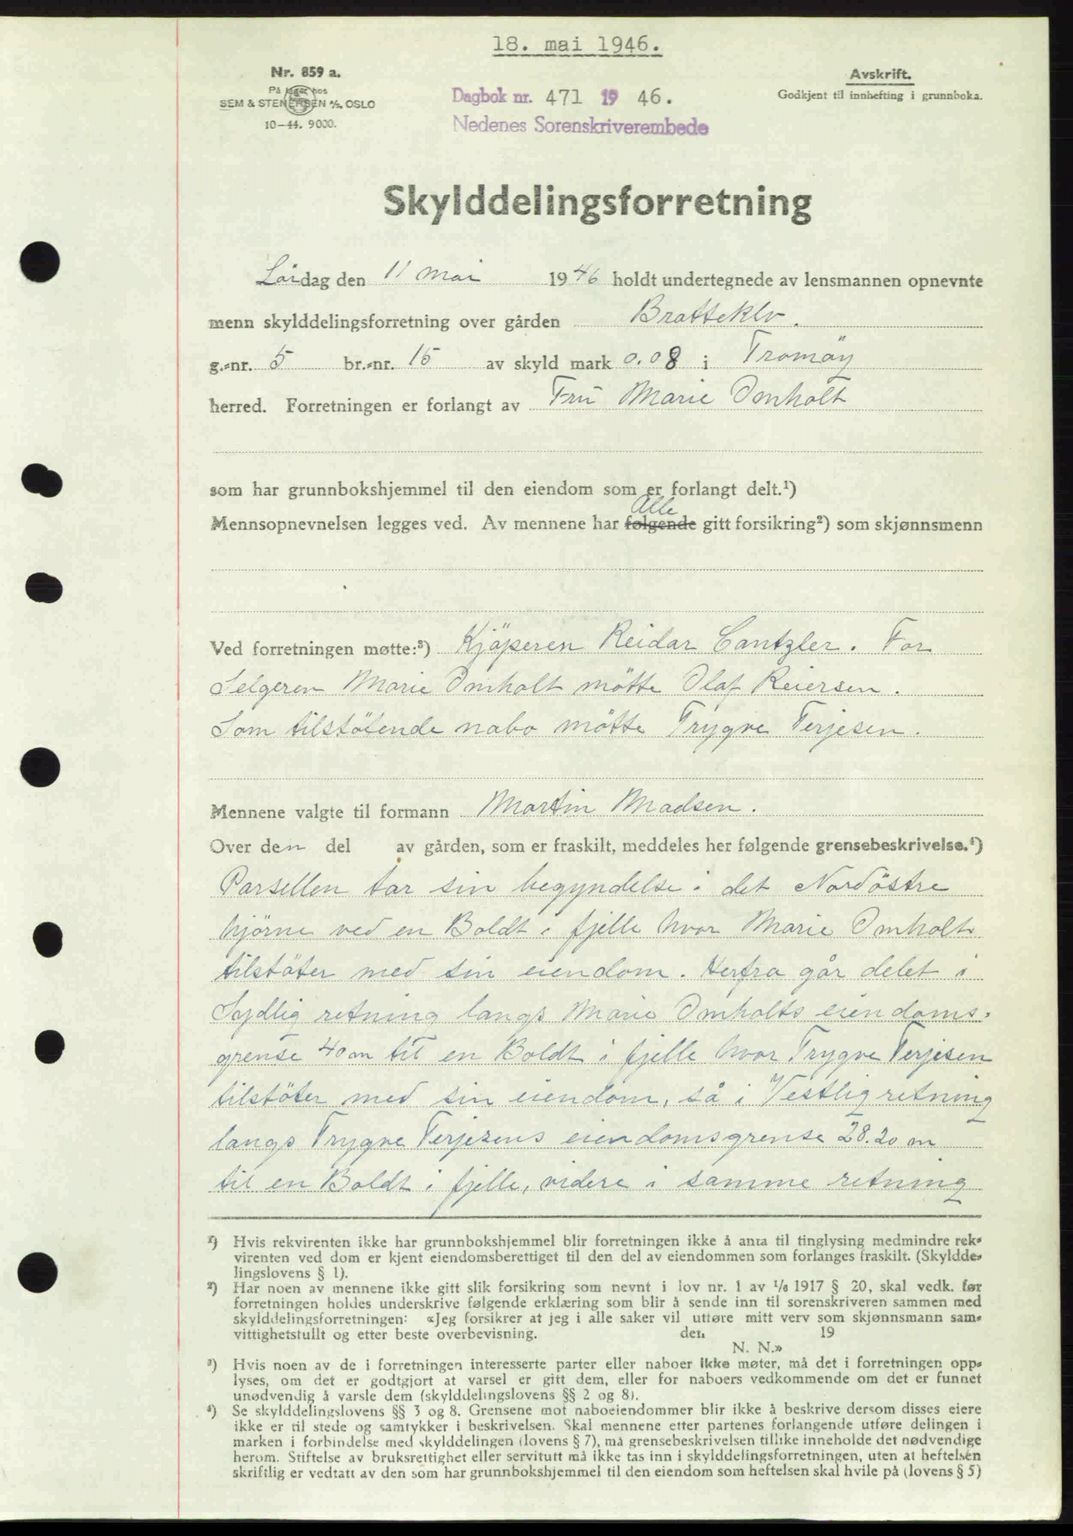 18. mai 1946.
Nr. 859 a.
På lager hos
SEM & STENERSEN A/S. OSLO
10-44. 9000.
Dagbok nr. 471 19 46.
Nedenes Sorenskriverembede
Avskrift.
Godkjent til innhefting i grunnboka.
Skylddelingsforretning
Lördag den 11 mai 1946 holdt undertegnede av lensmannen opnevnte
menn skylddelingsforretning over gården Bratteklv.
g.-nr. 5 br.-nr. 15 av skyld mark 0.08 i Tromöy
herred. Forretningen er forlangt av Fru Marie Omholt
som har grunnbokshjemmel til den eiendom som er forlangt delt.¹)
Alle
Mennsopnevnelsen legges ved. Av mennene har følgende gitt forsikring²) som skjønnsmenn
Ved forretningen møtte:³) Kjöperen Reidar Cantzler. For
Selgeren Marie Omholt mötte Olaf Reiersen.
Som tilstötende nabo mötte Trygve Terjesen.
Mennene valgte til formann Martin Madsen.
Over den del av gården, som er fraskilt, meddeles her følgende grensebeskrivelse.⁴)
Parsellen tar sin begyndelse i det Nordöstre
hjörne ved en Boldt i fjelle hvor Marie Omholt
tilstöter med sin eiendom. Herfra går delet i
Sydlig retning langs Marie Omholts eiendoms-
grense 40 m til en Boldt i fjelle hvor Trygve Terjesen
tilstöter med sin eiendom, så i Vestlig retning
langs Trygve Terjesens eiendomsgrense 28.20 m
til en Boldt i fjelle, videre i samme retning
¹) Hvis rekvirenten ikke har grunnbokshjemmel blir forretningen ikke å anta til tinglysing medmindre rek-
virenten ved dom er kjent eiendomsberettiget til den del av eiendommen som forlanges fraskilt. (Skyldde-
lingslovens § 1).
²) Har noen av mennene ikke gitt slik forsikring som nevnt i lov nr. 1 av ¹/₆ 1917 § 20, skal vedk. før
forretningen holdes underskrive følgende erklæring som blir å sende inn til sorenskriveren sammen med
skylddelingsforretningen: «Jeg forsikrer at jeg i alle saker vil utføre mitt verv som skjønnsmann sam-
vittighetsfullt og etter beste overbevisning. den 19
N. N.»
³) Hvis noen av de i forretningen interesserte parter eller naboer ikke møter, må det i forretningen opp-
lyses, om det er godtgjort at varsel er gitt dem, eller for naboers vedkommende om det er funnet
unødvendig å varsle dem (skylddelingslovens §§ 2 og 8).
⁴) Se skylddelingslovens §§ 3 og 8. Grensene mot naboeiendommer blir ikke å beskrive dersom disses eiere
ikke er til stede og samtykker i beskrivelsen. Skal mennene etter partenes forlangende utføre delingen i
marken i forbindelse med skylddelingen (lovens § 7), må grensebeskrivelsen tillike inneholde det nødvendige
herom. Stiftelse av bruksrettighet eller servitutt må ikke tas inn i skylddelingsforretningen, uten at heftelsen
skriftlig er vedtatt av den som har grunnbokshjemmel til den eiendom som heftelsen skal hvile på (lovens § 5)